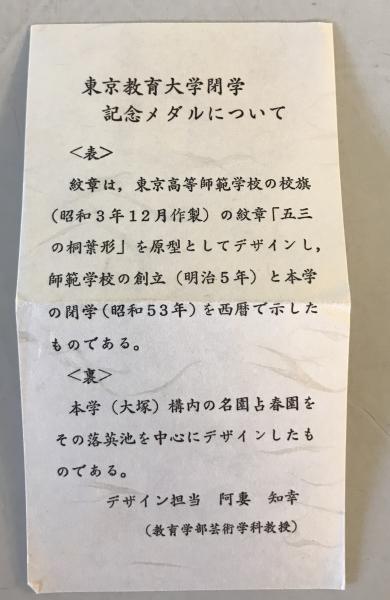 東京教育大学閉学
記念メダルについて
＜表＞
紋章は，東京高等師範学校の校旗
（昭和３年１２月作製）の紋章「五三
の桐葉形」を原型としてデザインし，
師範学校の創立（明治５年）と本学
の閉学（昭和５３年）を西暦で示した
ものである。
＜裏＞
本学（大塚）構内の名園占春園を
その落英池を中心にデザインしたも
のである。
デザイン担当　阿妻　知幸
（教育学部芸術学科教授）